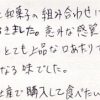 和菓子の組み合わせに
きました。意外な感覚
とても上品な口あたりで
なる味でした。
度で購入して食べたい